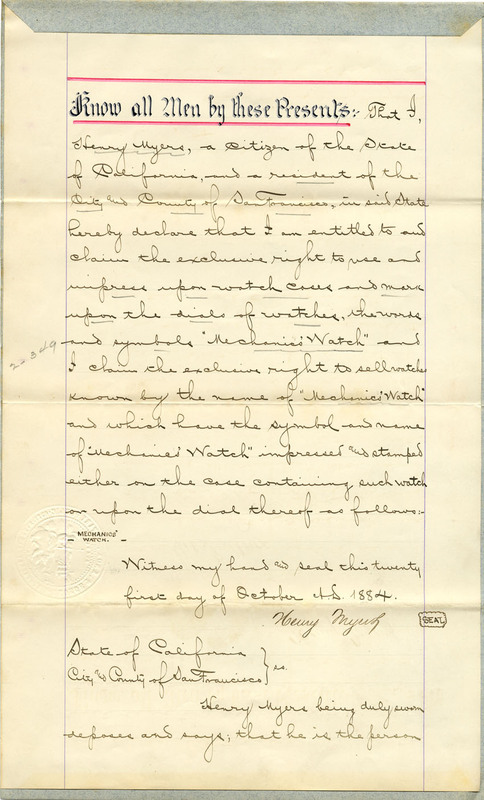 Know all Men by these Presents:- That I,
Henry Myers, a citizen of the State
of California, and a resident of the
City and County of San Francisco, in said State
hereby declare that I am entitled to and
claim the exclusive right to use and
impress upon watch cases and mark
upon the dials of watches, the words
and symbols "Mechanics' Watch" and
I claim the exclusive right to sell watches
known by the name of "Mechanics' Watch"
and which have the symbol and name
of "Mechanics' Watch" impressed and stamped
either on the case containing such watch
or upon the dial thereof as follows:-
MECHANICS'
WATCH.
Witness my hand and seal this twenty
first day of October A.D. 1884.
Henry Myers
SEAL
State of California
City and County of San Francisco } ss.
Henry Myers being duly sworn
deposes and says; that he is the person